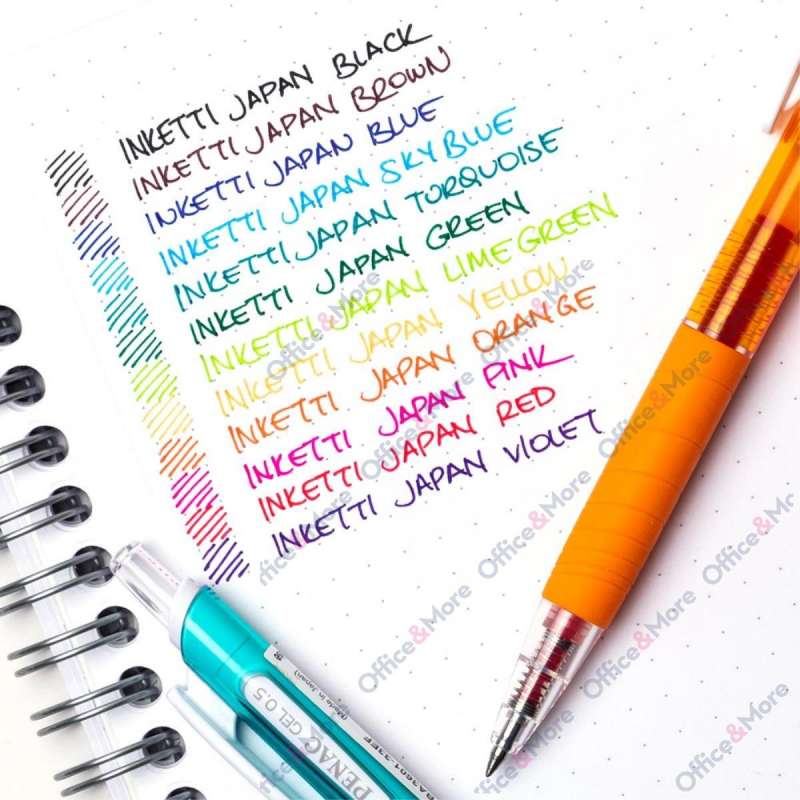 INKETTI JAPAN BLACK
INKETTI JAPAN BROWN
INKETTI JAPAN BLUE
INKETTI JAPAN SKY BLUE
INKETTI JAPAN TURQUOISE
INKETTI JAPAN GREEN
INKETTI JAPAN LIME GREEN
INKETTI JAPAN YELLOW
INKETTI JAPAN ORANGE
INKETTI JAPAN PINK
INKETTI JAPAN RED
INKETTI JAPAN VIOLET
(Made in Japan)
PENAC GEL 0.5
Office&More
Office&More
Office&More
Office&More
Office&More
Office&More
Office&More
Office&More
Office&More
Office&More
Office&More
Office&More